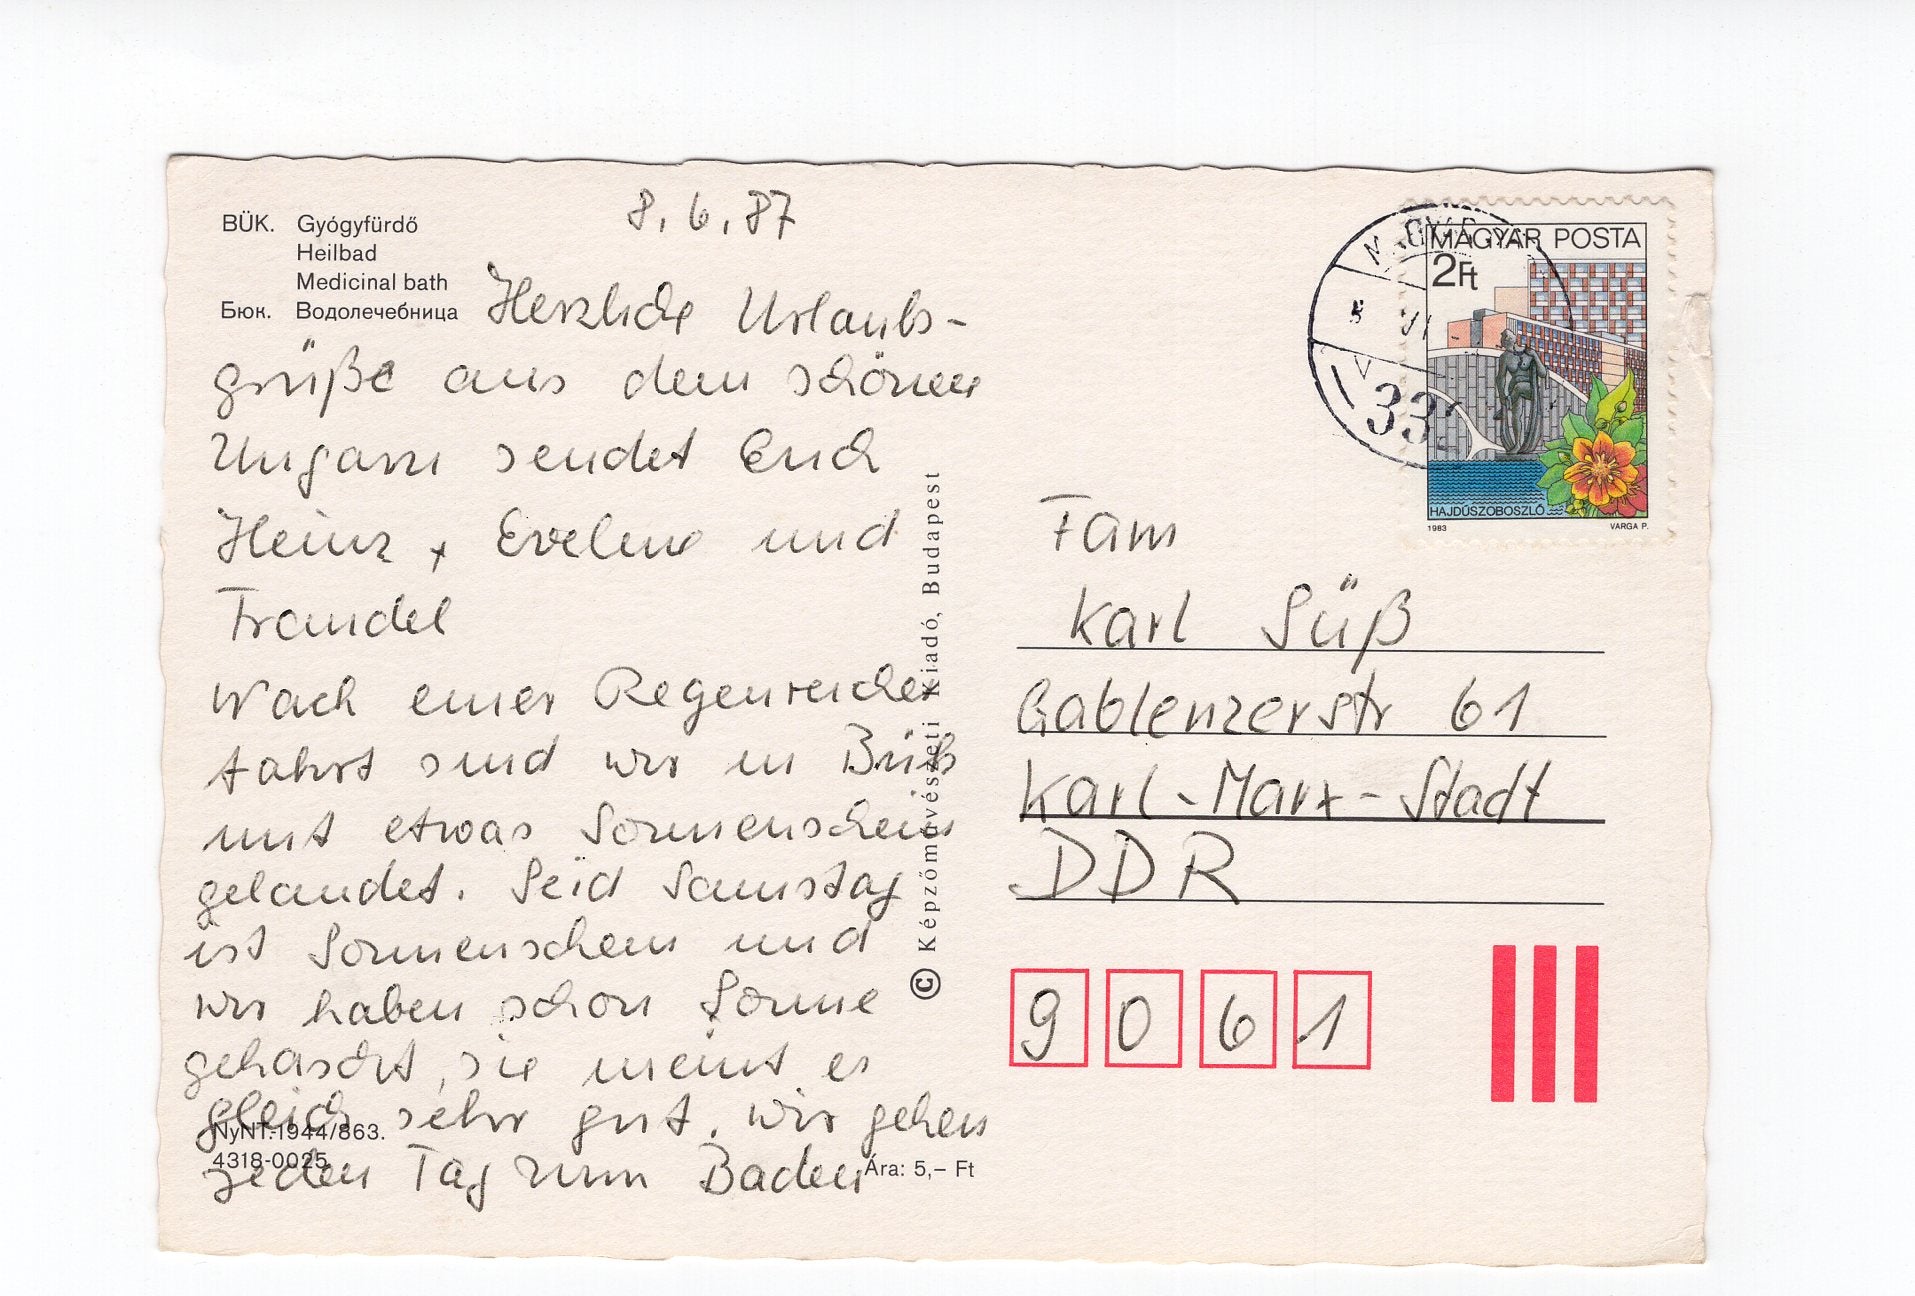 BÜK. Gyógyfürdő
Heilbad
Medicinal bath
Бюк. Водолечебница
8.6.87
Herzliche Urlaubs-
grüße aus dem schönen
Ungarn sendet Euch
Heinz, Eveline und
Traudel
Nach einer Regenreichen
fahrt sind wir in Bük
mit etwas Sonnenschein
gelandet. Seid Samstag
ist Sonnenschein und
wir haben schon Sonne
gehascht, sie meint es
gleich sehr gut. Wir gehen
jeden Tag zum Baden
NyNT.1944/863.
4318-0025
Ára: 5,– Ft
© Képzőművészeti Kiadó, Budapest
MAGYAR POSTA
2Ft
HAJDÚSZOBOSZLÓ
1983 VARGA P.
VI
Fam
Karl Süß
Gablenzerstr 61
Karl-Marx-Stadt
DDR
9061